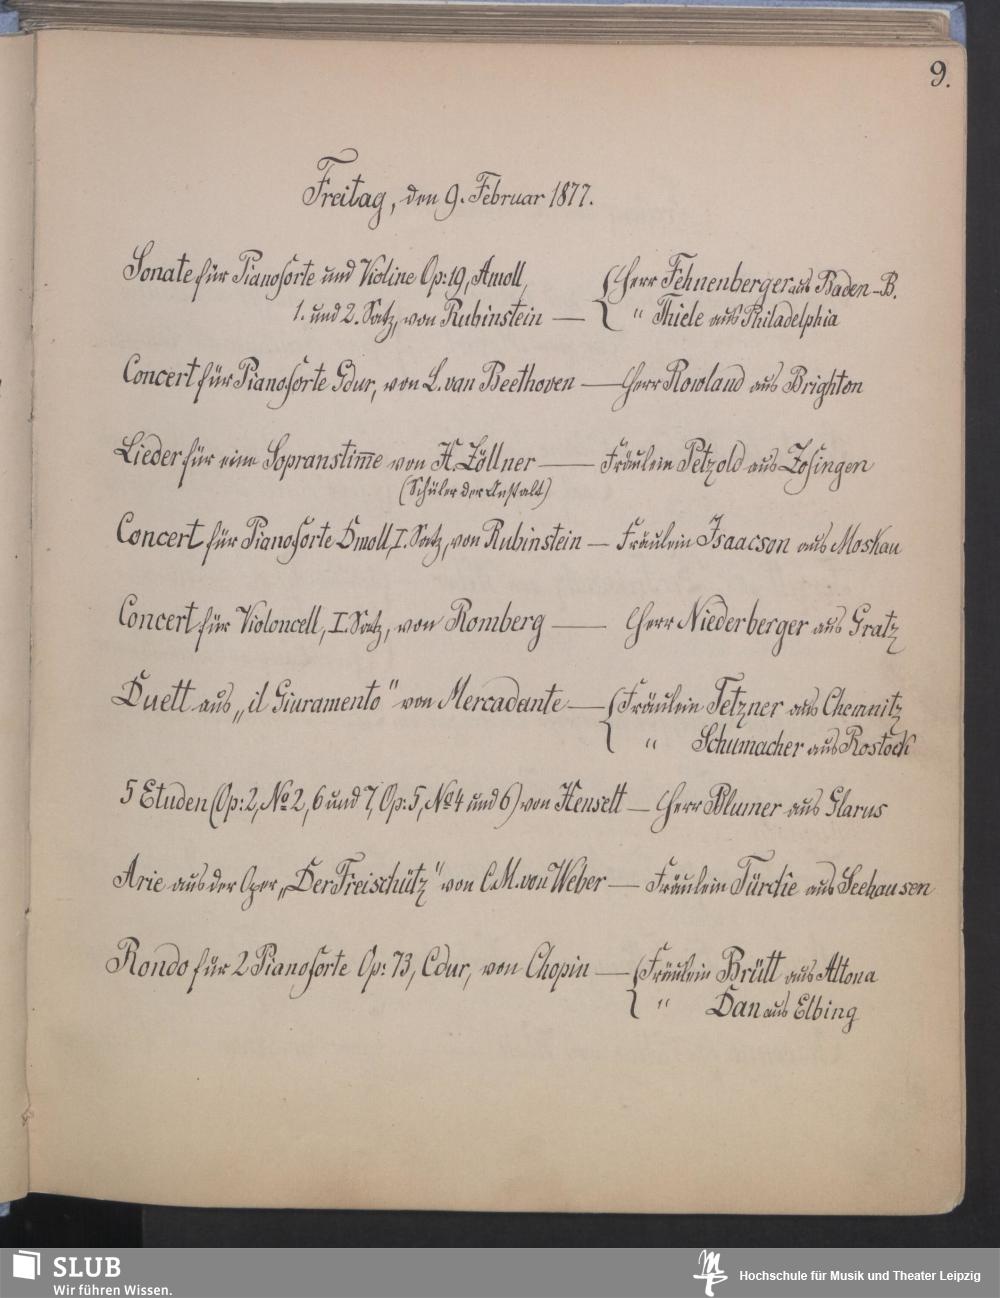 9.
Freitag, den 9. Februar 1877.
Sonate für Pianoforte und Violine Op: 19, Amoll, { Herr Fehnenberger aus Baden-B.
1. und 2. Satz, von Rubinstein — { " Thiele aus Philadelphia
Concert für Pianoforte Gdur, von L. van Beethoven — Herr Rowland aus Brighton
Lieder für eine Sopranstim̅e von H. Zöllner — Fräulein Petzold aus Zofingen
(Schüler der Anstalt)
Concert für Pianoforte Dmoll, I. Satz, von Rubinstein — Fräulein Isaacson aus Moskau
Concert für Violoncell, I. Satz, von Romberg — Herr Niederberger aus Gratz
Duett aus „il Giuramento" von Mercadante — { Fräulein Tetzner aus Chemnitz
{ " Schumacher aus Rostock
5 Etuden (Op: 2, No 2, 6 und 7, Op: 5, No 4 und 6) von Henselt — Herr Blumer aus Glarus
Arie aus der Oper „Der Freischütz" von C. M. von Weber — Fräulein Türcke aus Seehausen
Rondo für 2 Pianoforte Op: 73, Cdur, von Chopin — { Fräulein Brütt aus Altona
{ " Dan aus Elbing
SLUB
Wir führen Wissen.
Hochschule für Musik und Theater Leipzig